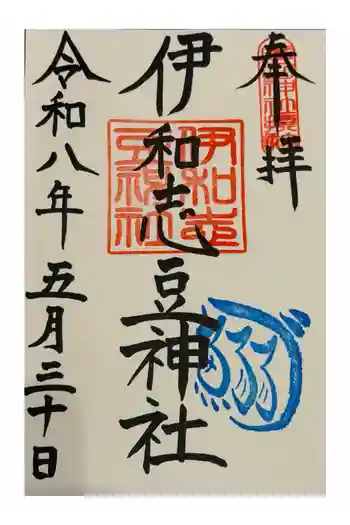 奉拝
伊和志豆神社
伊和志豆神社
令和八年五月三十日